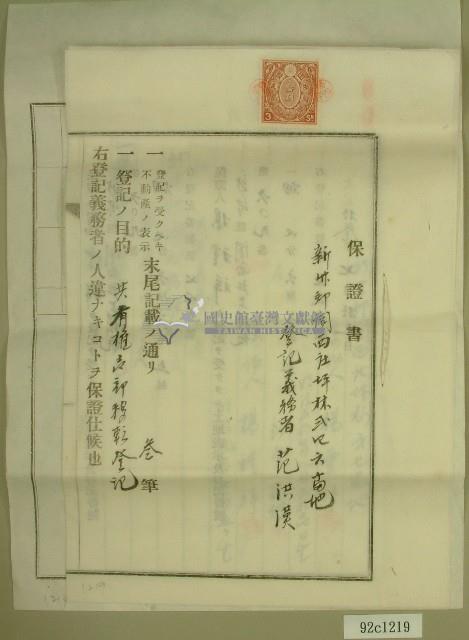 保證書
新竹郡關西庄坪林弐四六番地
登記義務者 范洪漢
一 登記ヲ受クヘキ不動産ノ表示 末尾記載ノ通リ 參筆
一 登記ノ目的 共有權一部移転登記
右登記義務者ノ人違ナキコトヲ保證仕候也
3 Sn
國史館臺灣文獻館
TAIWAN HISTORICA
92c1219